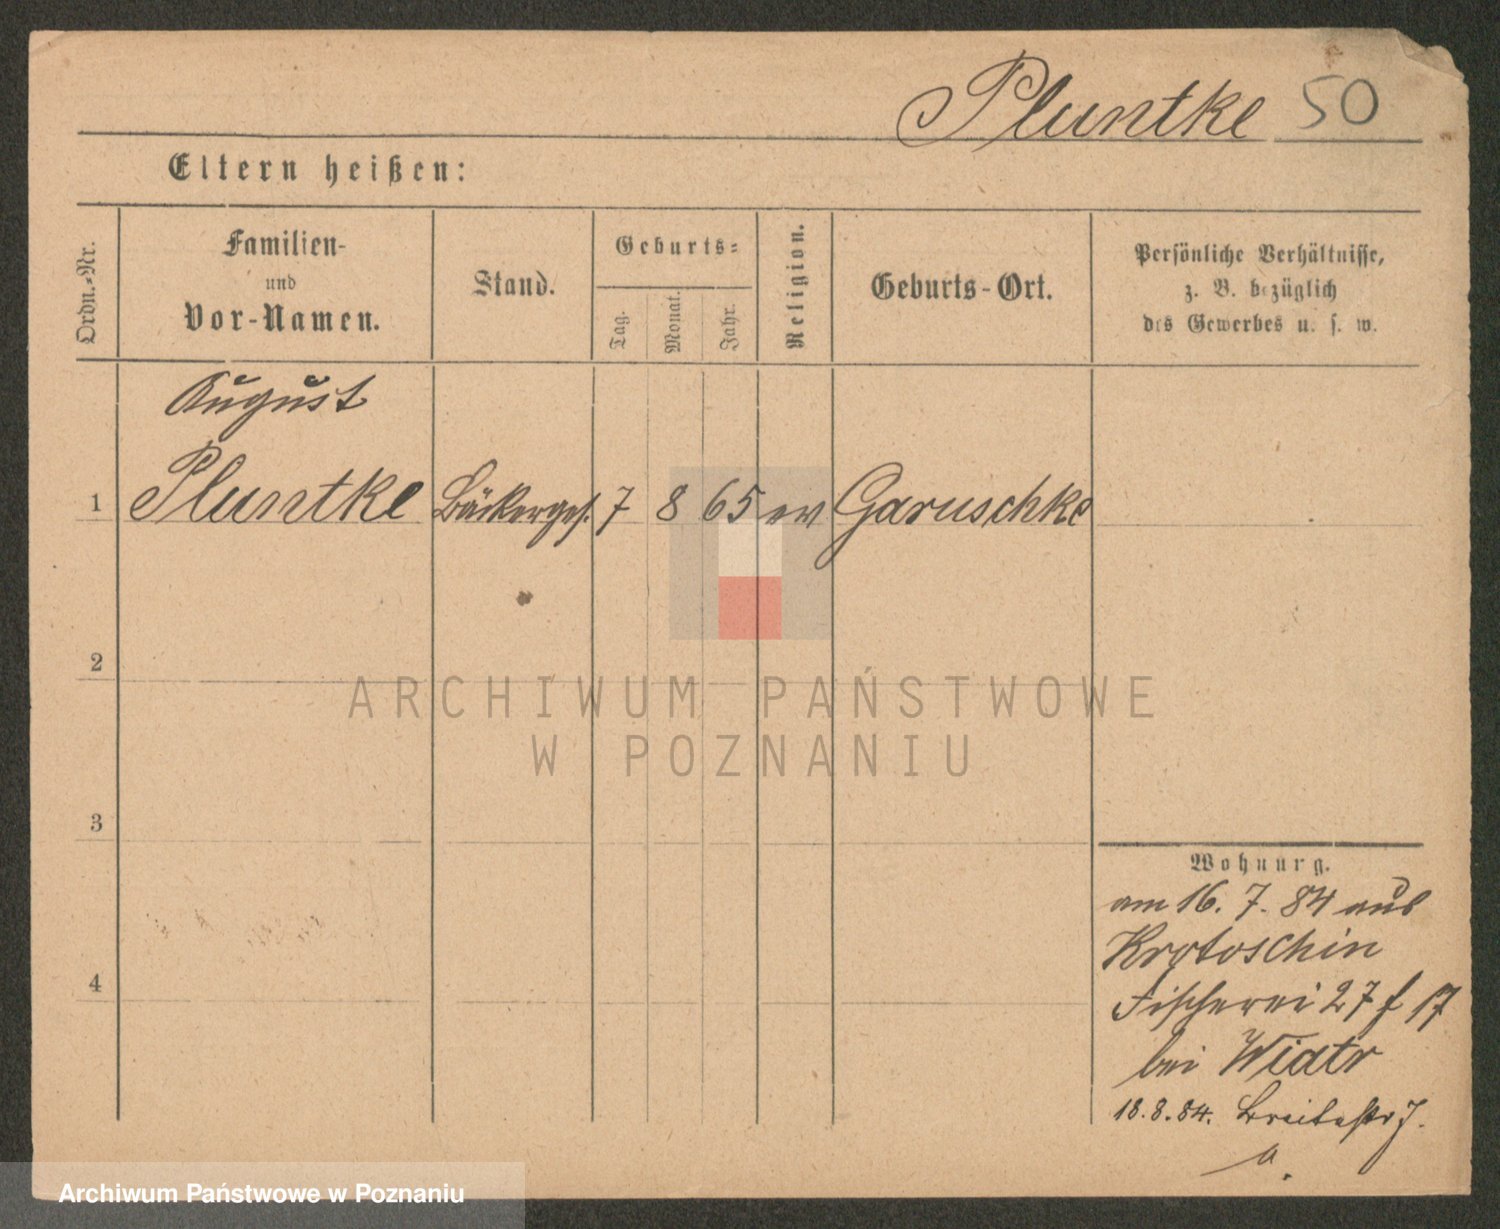 Pluntke 50
Eltern heißen:
Ordn.-Nr.
Familien-
und
Vor-Namen.
Stand.
Geburts-
Tag.
Monat.
Jahr.
Religion.
Geburts-Ort.
Persönliche Verhältnisse,
z. B. bezüglich
des Gewerbes u. s. w.
August
1 Pluntke Bäckerges. 7 8 65 ev Garuschke
2
ARCHIWUM PAŃSTWOWE
W POZNANIU
3
Wohnung.
am 16. 7. 84 aus
Krotoschin
4
Fischerei 27 f 17
bei Widtr
18. 8. 84. Breitestr 7.
a.
Archiwum Państwowe w Poznaniu